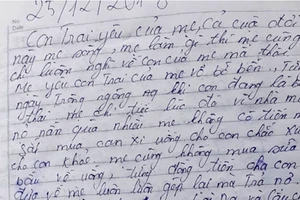 23/12/201
Con Trai yêu của mẹ, Cả cuộc đời
này mẹ sống, mẹ làm gì thì mẹ cũng
chỉ luôn nghĩ về con của mẹ mà thôi
Mẹ yêu con Trai của mẹ vô bờ bến,
ngày Trông ngóng khi con đang là b
thai mẹ thì lúc đó về nhà m
nợ nần quá nhiều mẹ không có tiền m
sữa mua, can xi uống cho con chắc xư
cho con khỏe, mẹ cũng không mua sữa
bầu về uống, từng đồng tiền cha con
đưa về mẹ luôn gom lại mà Trả nợ